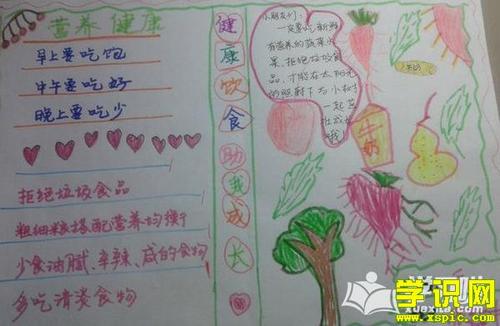 营养健康
早上要吃饱
中午要吃好
晚上要吃少
拒绝垃圾食品
粗细粮搭配营养均衡
少食油腻、辛辣、咸的食物
多吃清淡食物
健康饮食助我成长
小朋友们：
一定要吃新鲜
有营养的蔬菜水
果、拒绝垃圾食
品，才能在太阳光
的照射下与小树
一起茁
壮成长
牛奶
学识网
www.xspic.com